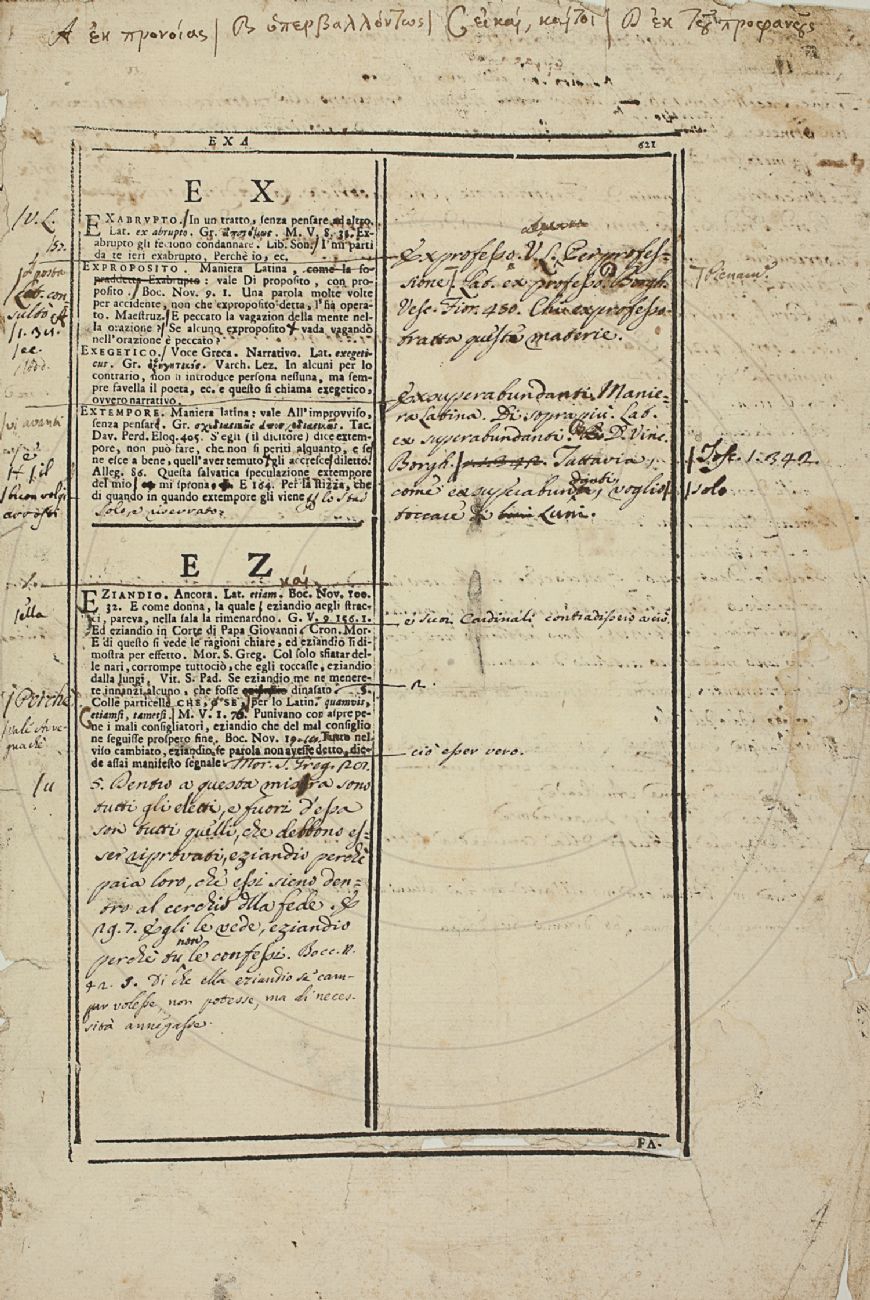 A ἐκ προνοίας | B ὑπερβαλλόντως | C εἰ καὶ, καίτοι | D ἐκ τοῦ προφανοῦς
EXA
621
E X
EXABRVPTO. In un tratto, senza pensare ad altro.
Lat. ex abrupto. Gr. M. V. S. 35. Ex-
abrupto gli feciono condannare. Lib. Son. I' mi parti
da te ieri exabrupto, Perchè io, ec.
EXPROPOSITO. Maniera Latina, come la so-
praddetta Exabrupto: vale Di proposito, con pro-
posito. Boc. Nov. 9. 1. Una parola molte volte
per accidente, non che exproposito detta, l'ha opera-
to. Maestruz. E peccato la vagazion della mente nel-
la orazione? Se alcuno exproposito vada vagando
nell'orazione è peccato?
EXEGETICO. Voce Greca. Narrativo. Lat. exegeti-
cus. Gr. ἐξηγητικός. Varch. Lez. In alcuni per lo
contrario, non si introduce persona nessuna, ma sem-
pre favella il poeta, ec. e questo si chiama exegetico,
ovvero narrativo.
EXTEMPORE. Maniera latina: vale All'improvviso,
senza pensare. Gr. Tac.
Dav. Perd. Eloq. 405. S'egli (il dicitore) dice extem-
pore, non può fare, che non si periti alquanto, e se
ne esce a bene, quell'aver temuto gli accresce diletto.
Alleg. 86. Questa salvatica speculazione extempore
del mio mi sprona E 164. Per la stizza, che
di quando in quando extempore gli viene lo stà
solo, e riservato.
V. L.
Lat. con
1. 31.
ec
vi avanti
è
il
buon volgi
Exprofesso. V. L. Per profes-
sione. Lat. ex professo. D Borgh.
Vesc. Fior. 450. Chi exprofesso
tratta questa materie.
Exsuperabundanti. Manie-
ra Latina. Di soprapiù. Lat.
ex superabundanti. B D. Vinc.
Borgh. Tuttavia,
come exsuperabundanti, voglio
toccare Luni.
Tosc. 1. 342
solo
E Z
καὶ
EZIANDIO. Ancora. Lat. etiam. Boc. Nov. 100.
32. E come donna, la quale eziandio negli strac-
ci, pareva, nella sala la rimenarono. G. V. 9 156. 1.
Ed eziandio in Corte di Papa Giovanni. Cron. Mor.
E di questo si vede le ragioni chiare, ed eziandio si di-
mostra per effetto. Mor. S. Greg. Col solo sfiatar del-
le nari, corrompe tuttociò, che egli toccasse, eziandio
dalla lungi. Vit. S. Pad. Se eziandio me ne menere-
te innanzi alcuno, che fosse dinasato. §.
Colle particelle CHE, o SE, per lo Latin. quamvis,
etiamsi, tametsi. M. V. 1. 76. Punivano con aspre pe-
ne i mali consigliatori, eziandio che del mal consiglio
ne seguisse prospero fine. Boc. Nov. Tutto nel
viso cambiato, eziandio se parola non avesse detto, die-
de assai manifesto segnale. Mor. S. Greg. 12.
5. Dentro a questa misura sono
tutti gli eletti, e fuori d'essa
son tutti quelli, che debbono es-
ser riprovati, eziandio perchè
paia loro, che essi sieno den-
tro al cerchio dlla fede. E
29. 7. Egli le vede, eziandio
perchè tu non le confessi. Bocc. N.
42. 9. Di che ella eziandio se cam-
par volesse, non potesse, ma di neces-
sità annegasse.
ella
Perchè
u
e sien Cardinali contradissero a ciò.
2.
ciò esser vero.
FA-